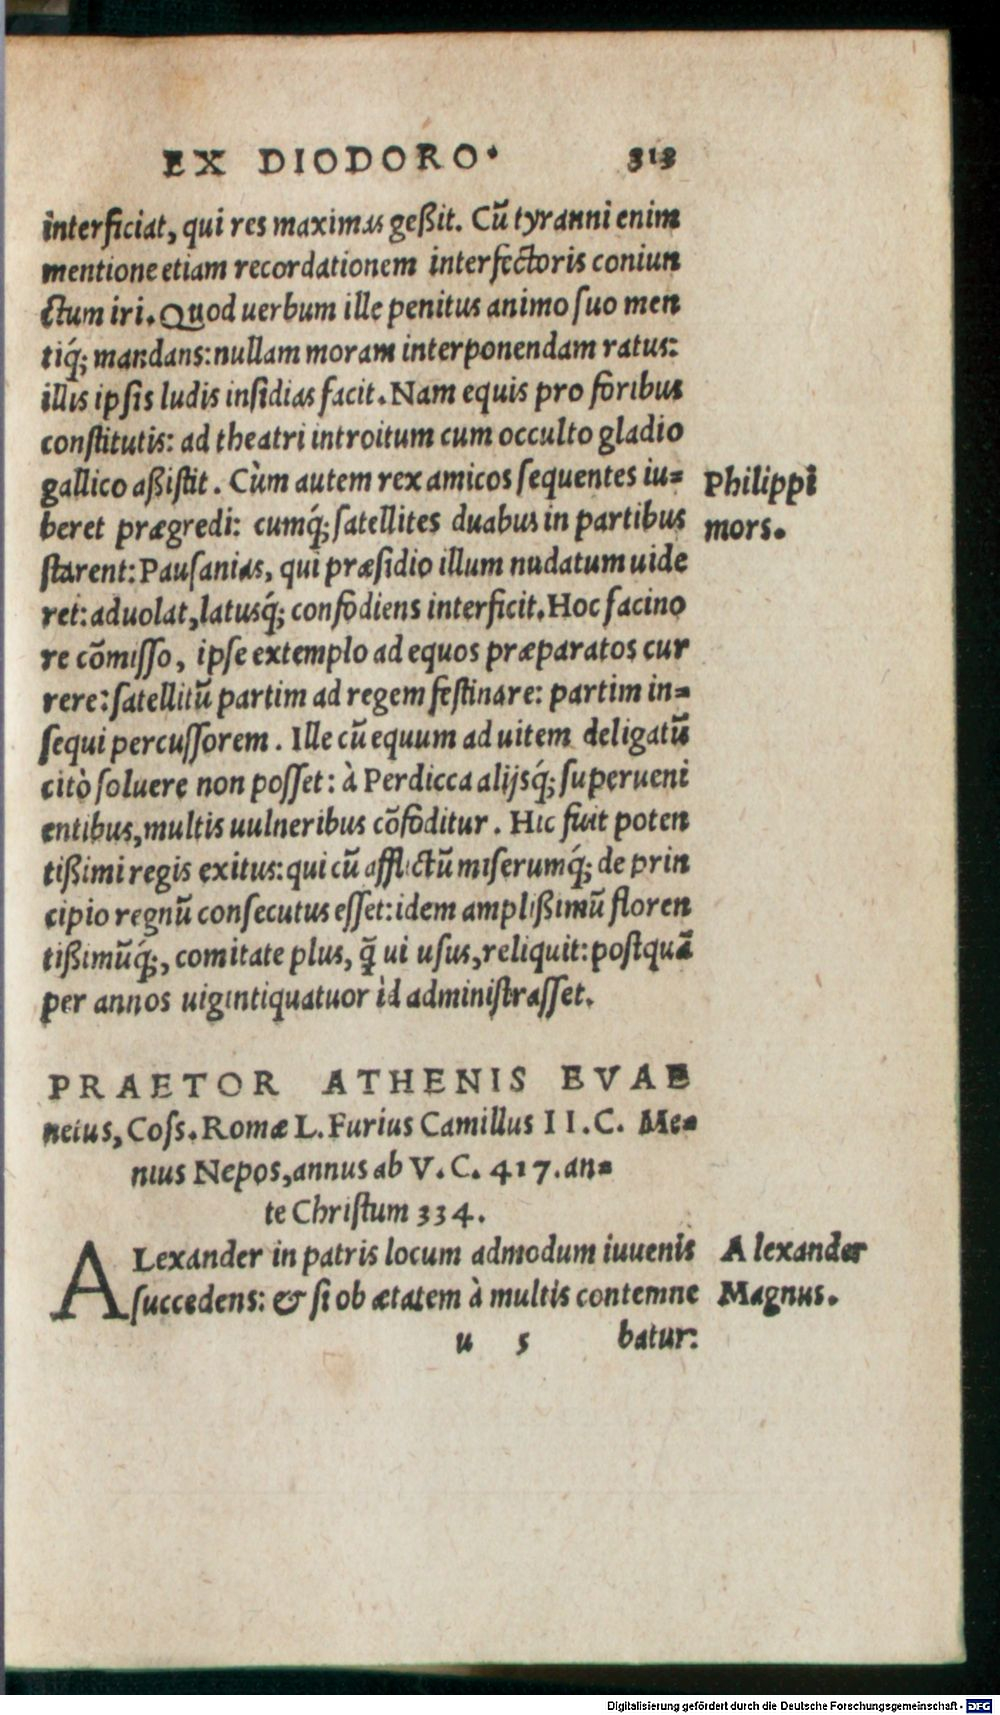 EX DIODORO. 313
interficiat, qui res maximas geßit. Cũ tyranni enim
mentione etiam recordationem interfectoris coniun
ctum iri. Quod uerbum ille penitus animo suo men
tiq́; mandans: nullam moram interponendam ratus:
illis ipsis ludis insidias facit. Nam equis pro foribus
constitutis: ad theatri introitum cum occulto gladio
gallico aßistit. Cùm autem rex amicos sequentes iu=
Philippi
beret prægredi: cumq́; satellites duabus in partibus
mors.
starent: Pausanias, qui præsidio illum nudatum uide
ret: aduolat, latusq́; confodiens interficit. Hoc facino
re cõmisso, ipse extemplo ad equos præparatos cur
rere: satellitũ partim ad regem festinare: partim in=
sequi percussorem. Ille cũ equum ad uitem deligatũ
citò soluere non posset: à Perdicca alijsq́; superueni
entibus, multis uulneribus cõfoditur. Hic fuit poten
tißimi regis exitus: qui cũ afflictũ miserumq́; de prin
cipio regnũ consecutus esset: idem amplißimũ floren
tißimũq́;, comitate plus, q̃ ui usus, reliquit: postquã
per annos uigintiquatuor id administrasset.
PRAETOR ATHENIS EVAE
netus, Coss. Romæ L. Furius Camillus II. C. Me=
nius Nepos, annus ab V. C. 417. an=
te Christum 334.
ALexander in patris locum admodum iuuenis
Alexander
succedens: & si ob ætatem à multis contemne
Magnus.
u 5 batur:
Digitalisierung gefördert durch die Deutsche Forschungsgemeinschaft - DFG